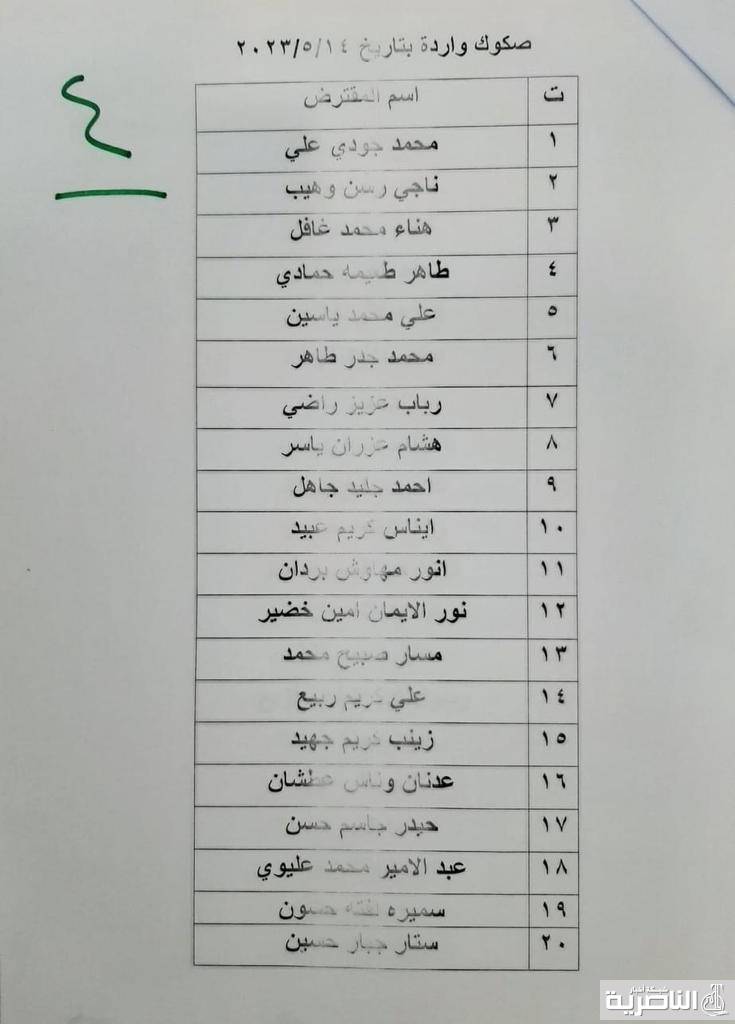 صكوك واردة بتاريخ ٢٠٢٣/٥/١٤
٤
ت اسم المقترض
١ محمد جودي علي
٢ ناجي رسن وهيب
٣ هناء محمد غافل
٤ طاهر طعيمه حمادي
٥ علي محمد ياسين
٦ محمد جدر طاهر
٧ رباب عزيز راضي
٨ هشام عزران ياسر
٩ احمد جليد جاهل
١٠ ايناس كريم عبيد
١١ انور مهاوش بردان
١٢ نور الايمان امين خضير
١٣ مسار صبيح محمد
١٤ علي كريم ربيع
١٥ زينب كريم جهيد
١٦ عدنان وناس عطشان
١٧ حيدر جاسم حسن
١٨ عبد الامير محمد عليوي
١٩ سميره لفته حسون
٢٠ ستار جبار حسين
شبكة أخبار
الناصرية